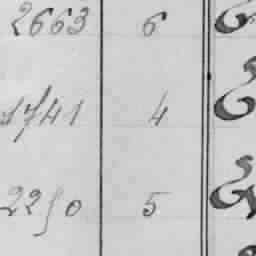 2663 6
1741 4
2250 5